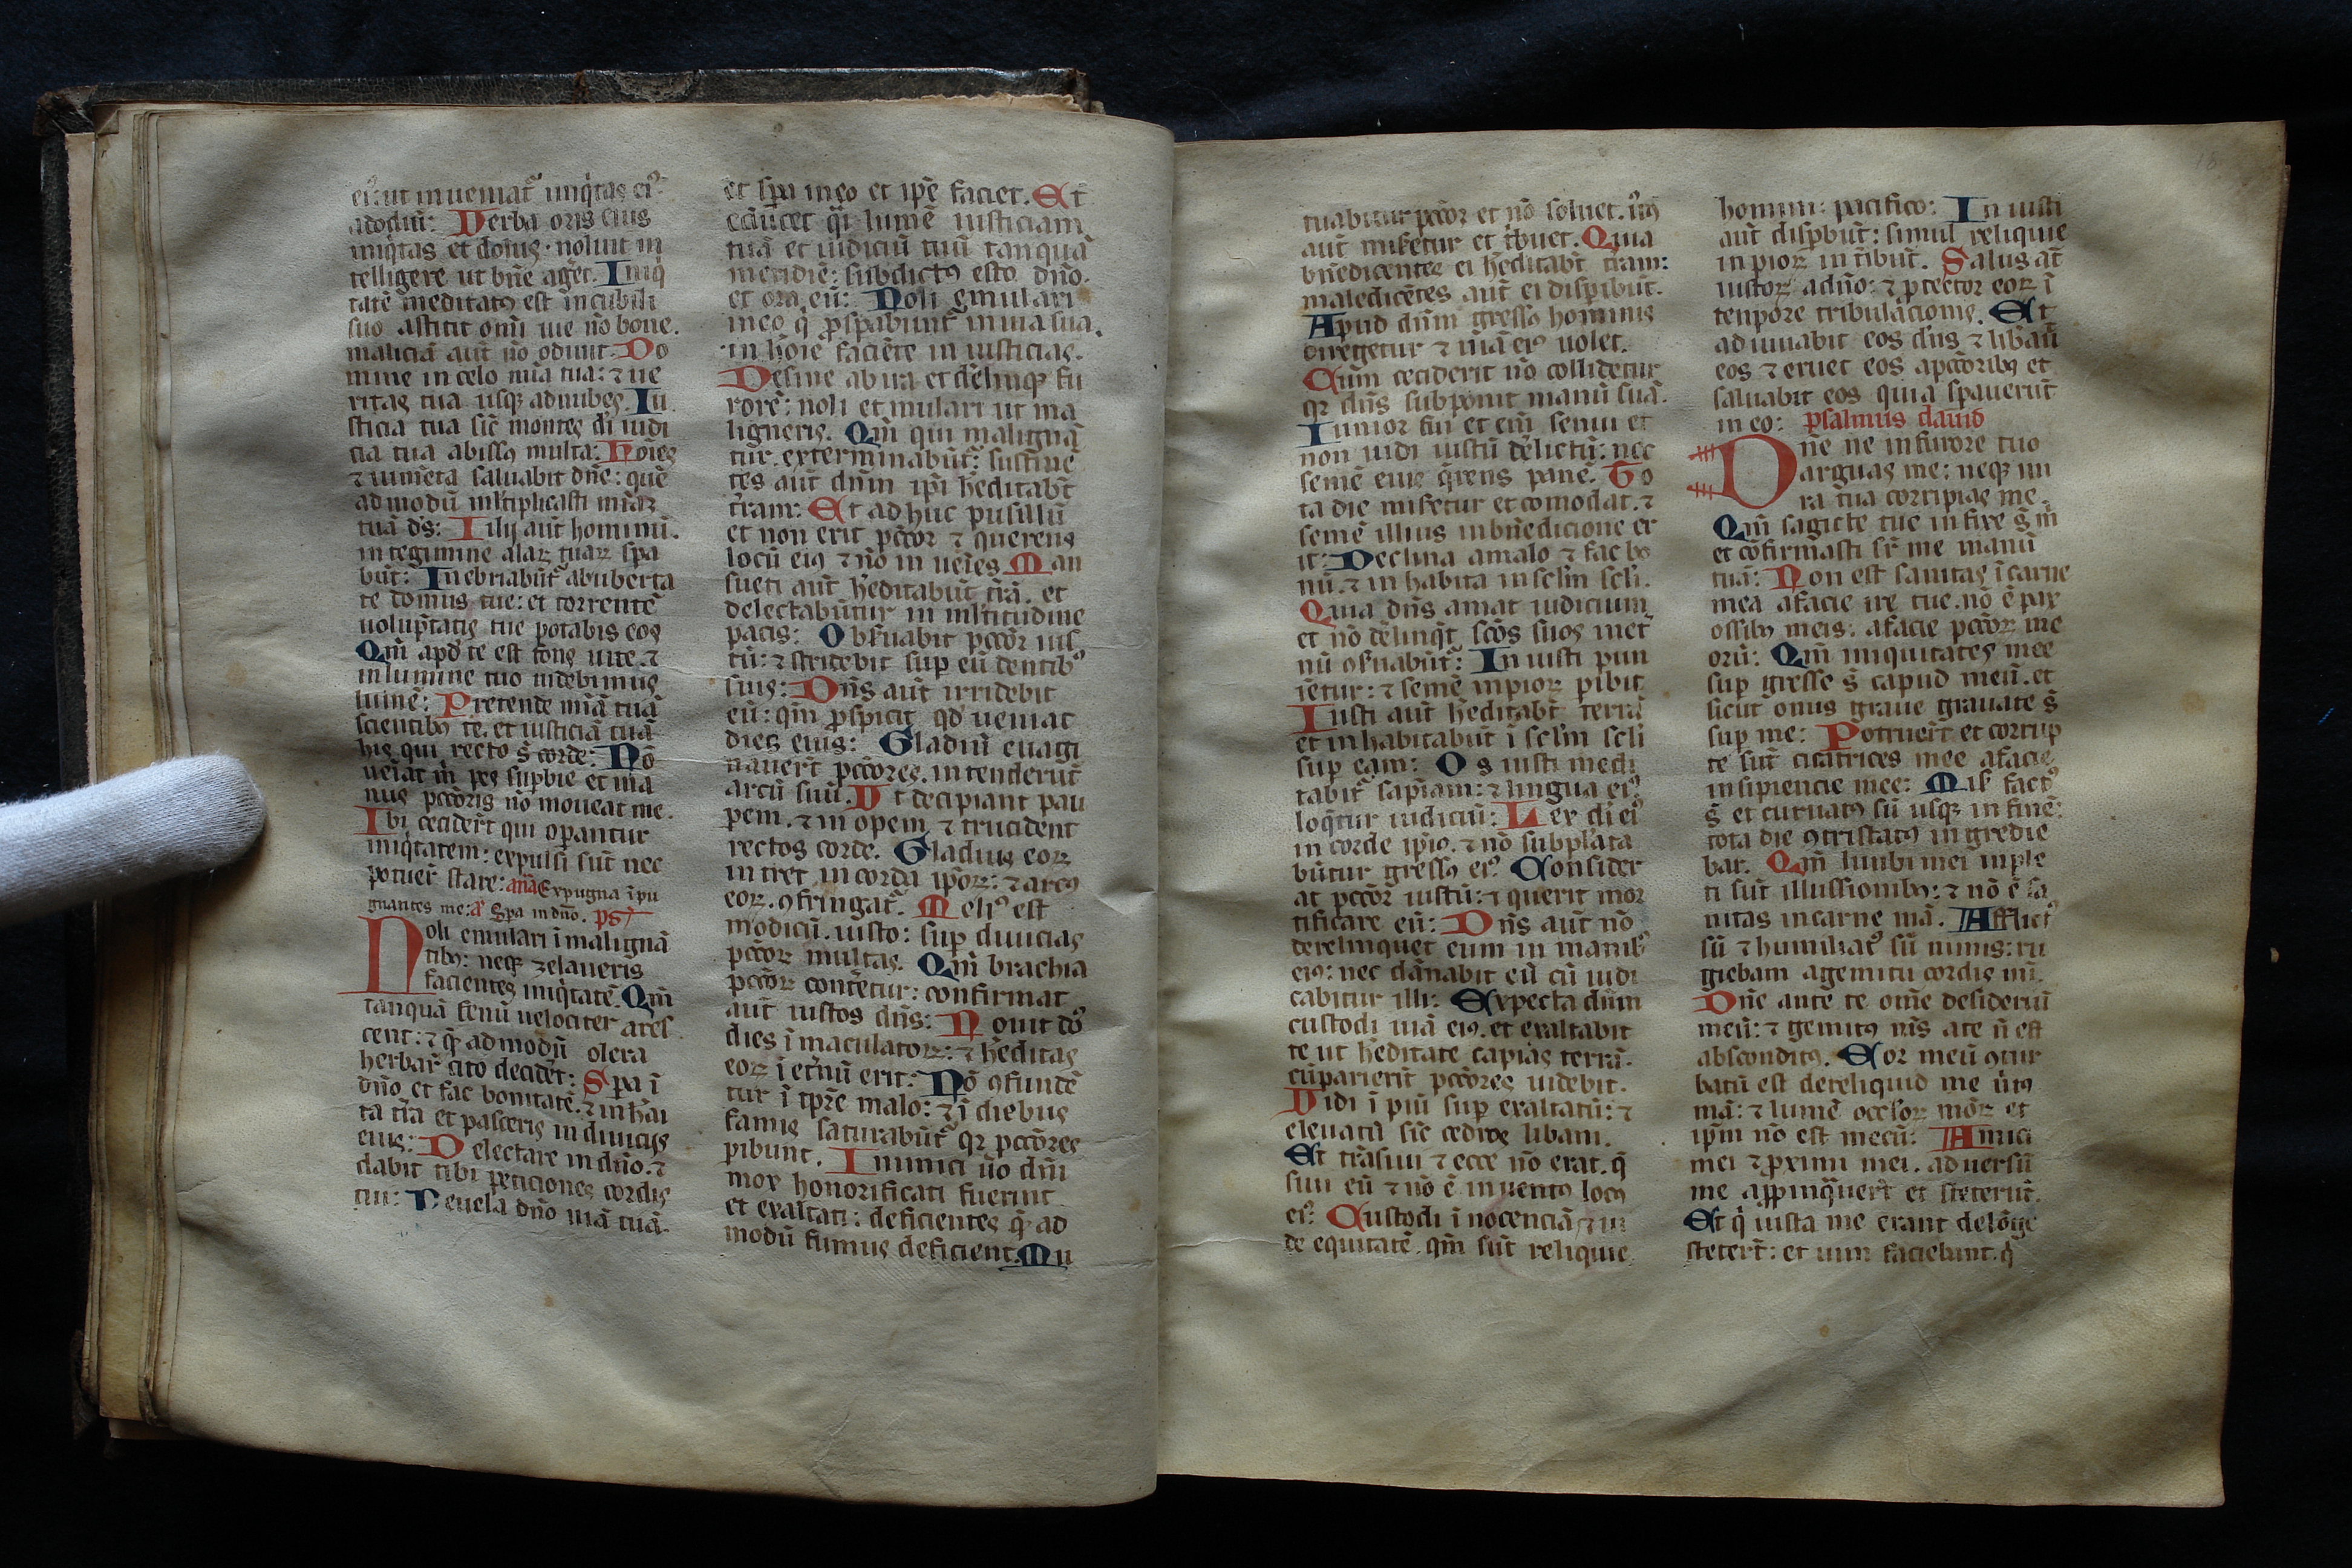 eiꝰ: ut inueniat᷑ iniq̇tas eiꝰ
adodiū: Verba oris eius
iniq̇tas et dolus · noluit in
telligere ut bn̄e aḡet. Iniq̇
tatē meditatꝰ est in cubili
suo astitit om̄i uie nō bone.
maliciā aut̄ nō odiuit. Do
mine in celo mīa tua: ⁊ ue
ritas tua usqꝫ ad nubes. Iu
sticia tua sic̄ montes di iudi
cia tua abissꝰ multa: Hoīes
⁊ iumēta saluabit dn̄e: quē
admodū mltiplicasti mīaꝝ
tuā ds̄: Filij aut̄ hominū.
in tegimine alaꝝ tuaꝝ spa
būt: Inebriabūt᷑ abuberta
te domus tue: et torrentē
uolup̄tatis tue potabis eos
Qm̄ apd̄ te est fons uite. ⁊
in lumine tuo uidebimus
lumē: Pretende mīā tuā
scientibꝰ te. et iusticiā tuā
his qui recto s̄ corde: Nō
ueīat m̄ pes supbie et ma
nus pctōris nō moueat me.
Ibi cecider̄t qui opantur
iniq̇tatem: expulsi sūt nec
potuer̄ stare: añā Expugna īpu
gnantes me: a᷑ Spa in dn̄o. ps᷑
Noli emulari ī malignā
tibꝰ: neqꝫ zelaueris
facientes iniq̇tatē. Qm̄
tanquā fenū uelociter ares
cent: ⁊ q̄ admodū olera
herbar̄ cito decidēt: Spa ī
dn̄o et fac bonitatē. ⁊ inhai
ta tr̄a et pasceris in diuicijs
eius: Delectare in dn̄o. ⁊
dabit tibi peticiones cordis
tui: Reuela dn̄o uiā tuā.
et spa in eo et ipē faciet. Et
educet q̇i lumē iusticiam
tuā et iudiciū tuū tanquā
meridiē: subdictꝰ esto dn̄o.
et ora eū: Noli emulari
in eo q̇ prospabunt᷑ in uia sua.
in hoīe faciēte in iusticias.
Desine ab ira et dēlinqꝫ fu
rorē: noli et mulari ut ma
ligneris. Qm̄ qui malignā
tur. exterminabūt᷑: sustine
tes aut̄ dn̄m ipi h̄editabt̄
tr̄am: Et ad huc pusillū
et non erit pctōr ⁊ querens
locū eiꝰ ⁊ nō in ueīes Man
sueti aut̄ h̄editabūt tr̄ā. et
delectabūtur in mltitudine
pacis: Obs̄uabit pctōr ius
tū: ⁊ stridebit sup eū dentibꝰ
suis: Dn̄s aut̄ irridebit
eū: qm̄ prospicit qd̄ ueniat
dies eius: Gladiū euagi
nauer̄t pctōres. intenderūt
arcū suū. Vt decipiant pau
pem. ⁊ in opem ⁊ trucident
rectos corde. Gladius eoꝝ
intret in corda ipoꝝ: ⁊ arcꝰ
eoꝝ. ꝯfringat᷑. Meliꝰ est
modicū. iusto: sup diuicias
pctōꝝ multas. Qm̄ brachia
pctōꝝ conterētur: confirmat
aut̄ iustos dn̄s: Nouit do᷑
dies ī maculatoꝝ: ⁊ h̄editas
eoꝝ ī et̄nū erit: Nō ꝯfundē
tur ī tp̄re malo: ⁊ ī diebus
famis saturabūt᷑ qꝛ pctōres
pibunt. Inimici ūo dn̄i
mox honorificati fuerint
et exaltati: deficientes q̄ ad
modū fumus deficient. Mu
tuabitur pctōr et nō soluet. iūs
aut̄ misetur et tbuet. Quia
bn̄edicentes ei h̄editabt̄ tr̄am:
maledicētes aut̄ ei dispibūt.
Apud dn̄m gressꝰ hominis
diregetur ⁊ uiā eiꝰ uolet.
Cum ceciderit nō collidetur
qꝛ dn̄s subponit manū suā.
Iunior fui et em̄ senui et
non uidi iustū dēlictū: nec
semē eius q̄rens panē. To
ta die misetur et comodat. ⁊
semē illius in bn̄edicione er
it: Declina amalo ⁊ fac bo
nū. ⁊ in habita in sclm̄ scli.
Quia dn̄s amat iudicium
et nō dēlinq̄t scōs suos in et
nū ꝯs̄uabūt᷑: In iusti pun
ietur: ⁊ semē inpioꝝ pibit
Iusti aut̄ h̄editabt̄ terrā
et in habitabūt ī sclm̄ scli
sup eam: Os iusti medi
tabit᷑ sapīam: ⁊ lingua eiꝰ
loq̄tur iudiciū: Lex di eiꝰ
in corde ipiꝰ. ⁊ nō subplāta
būtur gressꝰ eiꝰ Consider
at pctōr iustū: ⁊ querit mor
tificare eū: Dn̄s aut̄ nō
derelinquet eum in manibꝰ
eiꝰ: nec dānabit eū cū iudi
cabitur illi: Expecta dn̄m
custodi uiā eiꝰ. et exaltabit
te ut h̄editate capias terrā.
cū parierīt pctōres uidebit.
Vidi ī piū sup exaltatū: ⁊
eleuatū sic̄ cedros libani.
Et trāsiui ⁊ ecce nō erat. q̄
siui eū ⁊ nō ē inuentꝰ locꝰ
eiꝰ Custodi ī nocenciā ⁊ ui
de equitatē. qm̄ sūt reliquie
homini: pacifico: In iusti
aut̄ dispbūt: simul reliquie
inpioꝝ in tibūt. Salus at̄
iustoꝝ adn̄o: ⁊ ptector eoꝝ ī
tenpore tribulacionis. Et
adiuuabit eos dn̄s ⁊ libaū
eos ⁊ eruet eos apctōribꝰ et
saluabit eos quia spauerūt
in eo: psalmus dauid
Dn̄e ne in furore tuo
arguas me: neqꝫ in i
ra tua corripias me.
Qm̄ sagitte tue in fixe s̄ m̄
et cōfirmasti sr̄ me manū
tuā: Non est sanitas ī carne
mea afacie ire tue. nō ē pax
ossibꝰ meis: afacie pctōꝝ me
orū: Qm̄ iniquitates mee
sup gresse s̄ capud meū. et
sicut onus graue grauate s̄
sup me: Potruer̄t et corrup
te sūt cicatrices mee afacie
insipiencie mee: Mis̄ factꝰ
s̄ et curuatꝰ sū usqꝫ in finē:
tota die ꝯtristatꝰ in gredie
bar. Qm̄ lunbi mei inple
ti sūt illussionibꝰ: ⁊ nō ē sa
nitas in carne mā. Afflictꝰ
sū ⁊ humiliatꝰ sū nimis: ru
giebam agemitu cordis mī.
Dn̄e ante te om̄e desideriū
meū: ⁊ gemitꝰ mīs ate n̄ est
absconditꝰ. Cor meū ꝯtur
batū est dereliquid me ūtus
mā: ⁊ lumē oclōꝝ moꝝ et
ipm̄ nō est mecū: Amici
mei ⁊ pximi mei. aduersū
me appinq̄uer̄t et steterūt.
Et q̇ iuxta me erant de lōge
steter̄t: et uim faciebunt. q̇